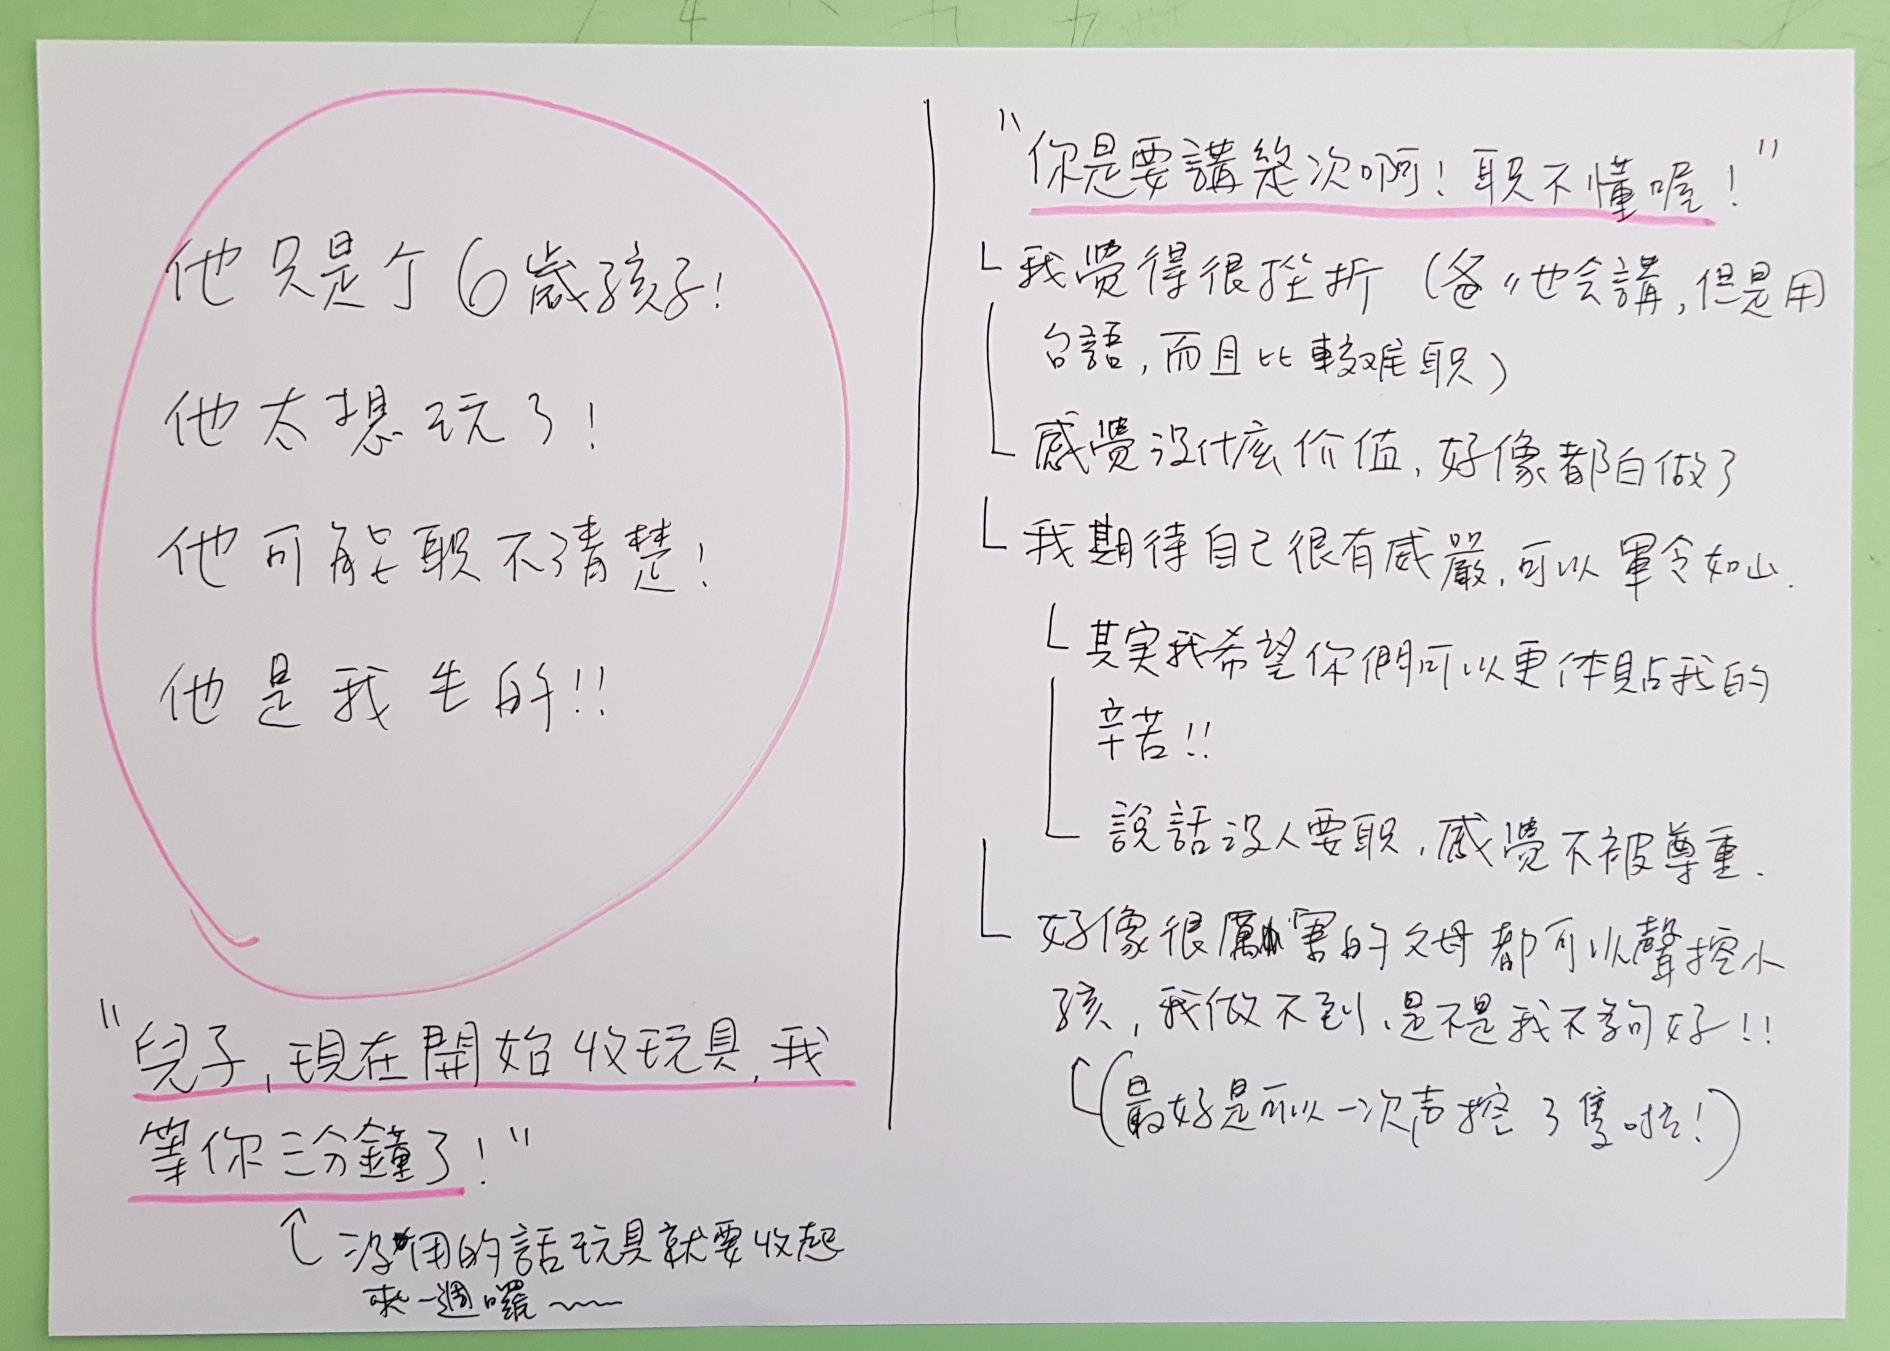 他只是个6歲孩子!
他太想玩了!
他可能职不清楚!
他是我生的!!
"兒子,現在開始收玩具,我
等你三分鐘了!"
沒用的話玩具就要收起
來一週囉~~~
"你是要講幾次啊!职不懂喔!"
我覺得很挫折(爸〃也会講,但是用
台語,而且比較难职)
感覺沒什麼价值,好像都白做了
我期待自己很有威嚴,可以軍令如山.
其实我希望你們可以更体貼我的
辛苦!!
說話沒人要职,感覺不被尊重.
好像很厲害的父母都可以聲控小
孩,我做不到,是不是我不夠好!!
(最好是可以一次声控了隻啦!)